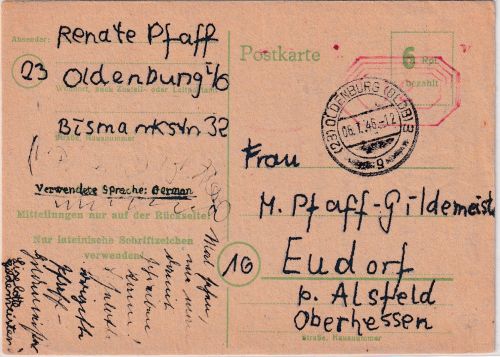 Absender: Renate Pfaff
23 Oldenburg i/O
Wohnort, auch Zustell- oder Leitpostamt
Bismarkstr 32
Straße, Hausnummer
Verwendete Sprache: German
Mitteilungen nur auf der Rückseite!
Nur lateinische Schriftzeichen
verwenden
Postkarte
6 Rpf.
bezahlt
(23) OLDENBURG (OLDB) 3
06.1.46.-12
g
Frau
M. Pfaff-Gildemeist
16
Eudorf
p. Alsfeld
Oberhessen
Straße, Hausnummer